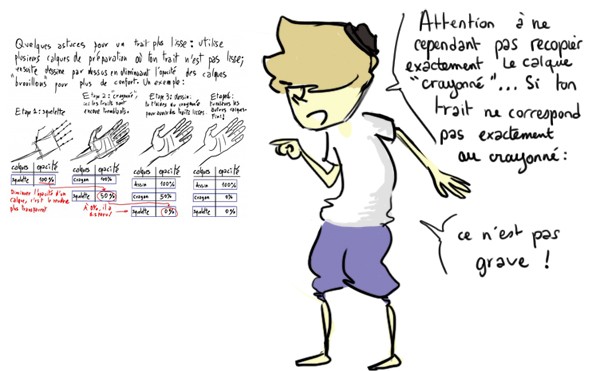 Quelques astuces pour un trait plus lisse : utilise
plusieurs calques de préparation où ton trait n'est pas lisse,
ensuite dessine par dessus en diminuant l'opacité des calques
"brouillons" pour plus de confort. Un exemple :
Etape 1 : squelette
Etape 2 : "crayonné",
ici les traits sont
encore tremblants.
Etape 3 : dessin.
pour avoir des traits lisses.
Etape 4 :
autres calques.
Fini !
calques opacité
squelette 100%
calques opacité
crayon 100%
squelette 50%
calques opacité
dessin 100%
crayon 50%
squelette 0%
calques opacité
dessin 100%
crayon 0%
squelette 0%
Diminuer l'opacité d'un
calque, c'est le rendre
plus transparent
À 0%, il a
disparu !
Attention à ne
cependant pas recopier
exactement le calque
"crayonné"... Si ton
trait ne correspond
pas exactement
au crayonné :
ce n'est pas
grave !